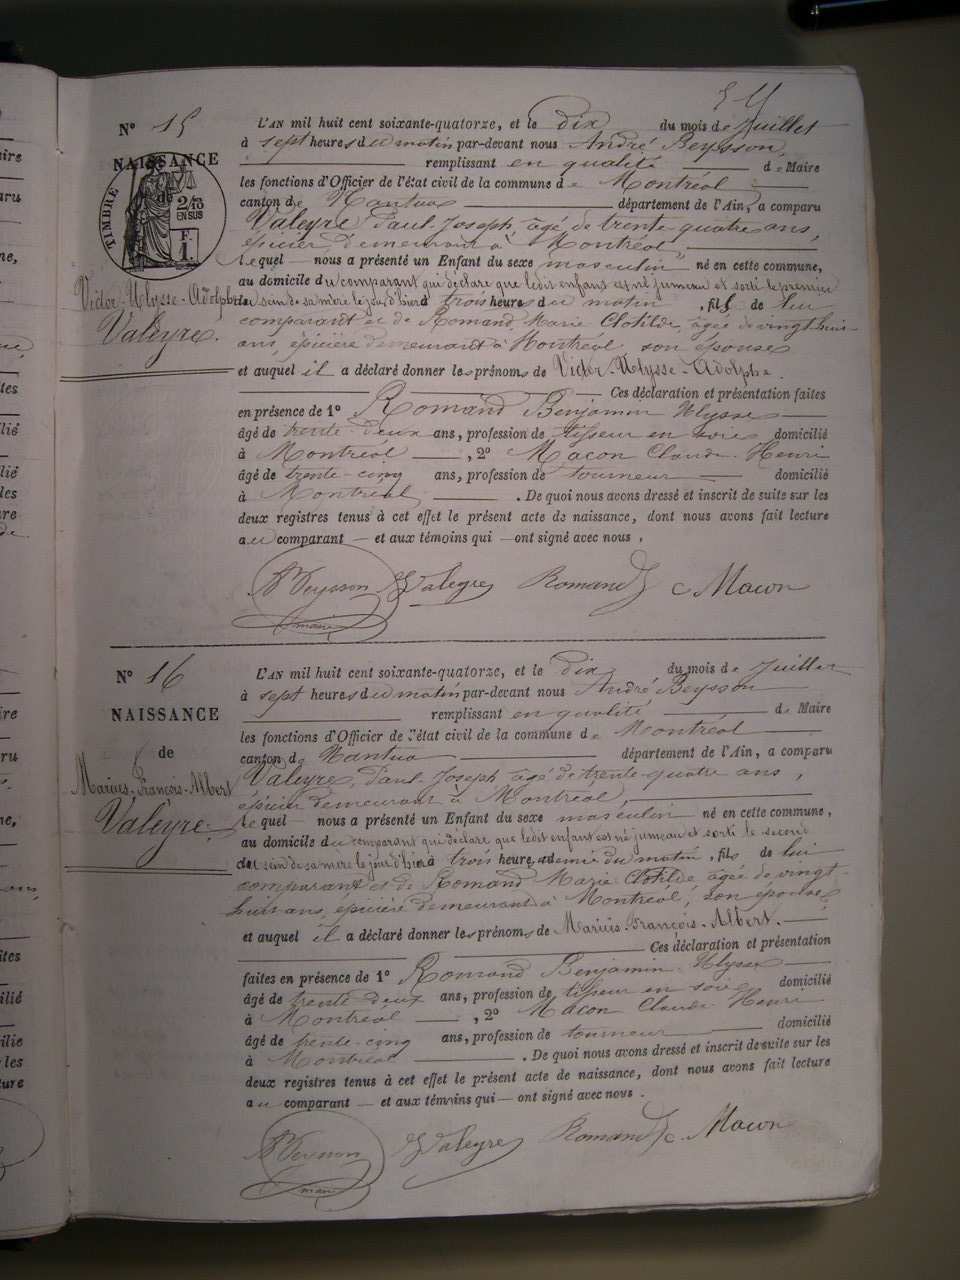 N° 15
NAISSANCE
de
TIMBRE
2/10
EN SUS
F.
1.
Victor-Ulysse-Adolphe
Valeyre.
L'AN mil huit cent soixante-quatorze, et le dix du mois de Juillet
à sept heures du matin par-devant nous André Beysson,
remplissant en qualité de Maire
les fonctions d'Officier de l'état civil de la commune de Montréal
canton de Nantua département de l'Ain, a comparu
Valeyre Paul-Joseph, âgé de trente-quatre ans,
épicier, demeurant à Montréal
lequel nous a présenté un Enfant du sexe masculin né en cette commune,
au domicile du comparant qui déclare que ledit enfant est né jumeau et sorti le premier
du sein de sa mère le jour d'hier à trois heures du matin, fils de lui
comparant et de Romand, Marie Clotilde, âgée de vingt huit
ans, épicière demeurant à Montréal son épouse
et auquel il a déclaré donner les prénoms de Victor-Ulysse-Adolphe.
Ces déclaration et présentation faites
en présence de 1° Romand Benjamin Ulysse
âgé de trente-deux ans, profession de tisseur en soie domicilié
à Montréal, 2° Macon Claude-Henri
âgé de trente-cinq ans, profession de tourneur domicilié
à Montréal. De quoi nous avons dressé et inscrit de suite sur les
deux registres tenus à cet effet le présent acte de naissance, dont nous avons fait lecture
au comparant et aux témoins qui ont signé avec nous.
A Beysson Valeyre Romand C Macon
maire
N° 16
NAISSANCE
de
Marius-François-Albert
Valeyre.
L'AN mil huit cent soixante-quatorze, et le dix du mois de Juillet
à sept heures du matin par-devant nous André Beysson
remplissant en qualité de Maire
les fonctions d'Officier de l'état civil de la commune de Montréal
canton de Nantua département de l'Ain, a comparu
Valeyre, Paul-Joseph âgé de trente-quatre ans,
épicier demeurant à Montréal,
lequel nous a présenté un Enfant du sexe masculin né en cette commune,
au domicile du comparant qui déclare que ledit enfant est né jumeau et sorti le second
du sein de sa mère le jour d'hier à trois heures et demie du matin, fils de lui
comparant et de Romand Marie Clotilde âgée de vingt-
huit ans, épicière demeurant à Montréal, son épouse
et auquel il a déclaré donner les prénoms de Marius-François-Albert.
Ces déclaration et présentation
faites en présence de 1° Romand Benjamin-Ulysse
âgé de trente deux ans, profession de tisseur en soie domicilié
à Montréal, 2° Macon Claude Henri
âgé de trente-cinq ans, profession de tourneur domicilié
à Montréal. De quoi nous avons dressé et inscrit de suite sur les
deux registres tenus à cet effet le présent acte de naissance, dont nous avons fait lecture
au comparant et aux témoins qui ont signé avec nous.
A Beysson Valeyre Romand C. Macon
maire